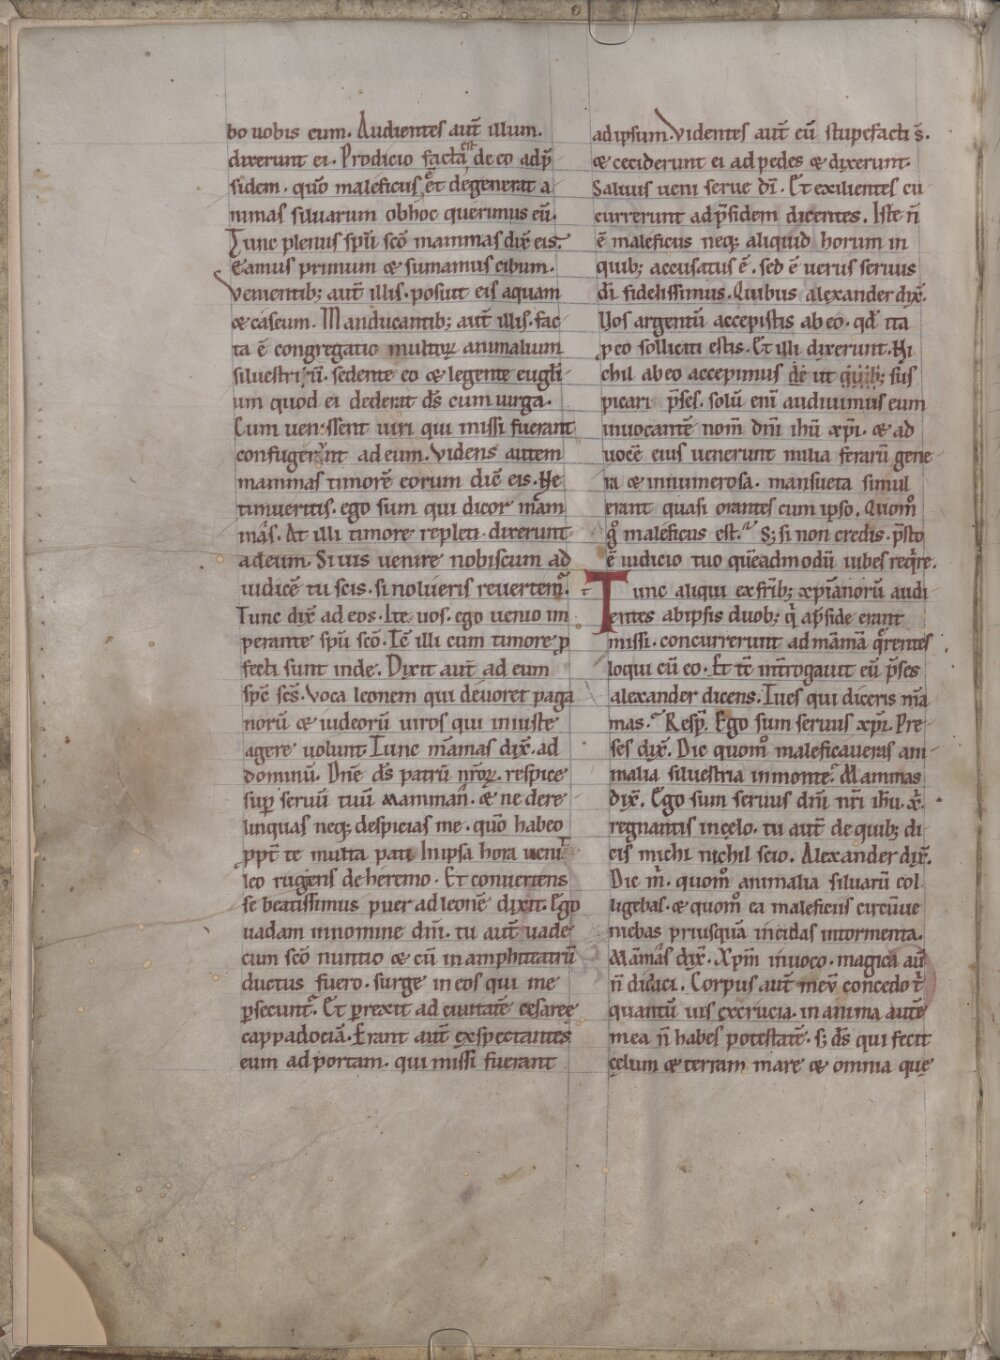 bo uobis eum. Audientes aut̄ illum.
dixerunt ei. Prodicio facta est de eo ad p̄
sidem. quō maleficus et degenerat a
nimas siluarum ob hoc querimus eū.
Tunc plenus spū scō mammas dix̄ eis.
Eamus primum & sumamus cibum.
Venientib; aut̄ illis. posuit eis aquam
& caseum. Manducantib; aut̄ illis. fac
ta ē congregatio multoꝝ animalium
siluestriū. sedente eo & legente eugl̄i
um quod ei dederat ds̄ cum uirga.
Cum uenissent uiri qui missi fuerant
confugerunt ad eum. Videns autem
mammas timorē eorum diē eis. Ne
timueritis. ego sum qui dicor mām
mas. At illi timore repleti dixerunt
ad eum. Si uis uenire nobiscum ad
iudicē tu scis. si nolueris reuertem̄.
Tunc dix̄ ad eos. Ite uos. ego uenio im
perante spū scō. Tē illi cum timore ꝓ
fecti sunt inde. Dixit aut̄ ad eum
spc̄ scs̄. Voca leonem qui deuoret paga
norū & iudeorū uiros qui iniuste
agere uolunt. Tunc māmas dix̄. ad
dominū. Dnē ds̄ patrū nr̄oꝝ. respice
sup seruū tuū mammān. & ne dere
linquas neq; despicias me. quō habeo
ꝓpt̄ te multa pati. In ipsa hora uenit
leo rugiens de heremo. Et conuertens
se beatissimus puer ad leonē dixit. Ego
uadam in nomine dn̄i. tu aut̄ uade
cum scō nuntio & cū in amphitatrū
ductus fuero. surge in eos qui me
ꝑsecunt̄. Et ꝑrexit ad ciuitatē cesaree
cappadociā. Erant aut̄ exspectantes
eum ad portam. qui missi fuerant
ad ipsum. Videntes aut̄ eū stupefacti s̄.
& ceciderunt ei ad pedes & dixerunt.
Saluus ueni serue dī. Et exilientes cu
currerunt ad p̄sidem dicentes. Iste n̄
ē maleficus neq; aliquid horum in
quib; accusatus ē. sed ē uerus seruus
dī fidelissimus. Quibus alexander dix̄.
Vos argentū accepistis ab eo. qd̄ ita
ꝓ eo solliciti estis. Et illi dixerunt. Ni
chil ab eo accepimus de ut quib; sus
picari p̄ses. solū enī audiuimus eum
inuocantē nom̄ dn̄i ihū xp̄i. & ad
uocē eius uenerunt milia ferarū gene
ra & innumerosa. mansueta simul
erant quasi orantes cum ipso. Quom̊
g̊ maleficus est. S; si non credis. p̄sto
ē iudicio tuo quēadmodū iubes reqr̄e.
t Tunc aliqui ex frīb; xp̄ianorū audi
entes ab ipsis duob; q̄ a p̄side erant
missi. concurrerunt ad māmā q̄rentes
loqui cū eo. Et tē int̄rogauit eū p̄ses
alexander dicens. Tu es qui diceris mā
mas. Resp̄. Ego sum seruus xp̄i. Pre
ses dix̄. Dic quom̊ maleficaueras ani
malia siluestria in monte. Mammas
dix̄. Ego sum seruus dn̄i nr̄i ihū. x̄.
regnantis in celo. tu aut̄ de quib; di
cis michi nichil scio. Alexander dix̄.
Dic m̄. quom̊ animalia siluarū col
ligebas. & quom̊ ea maleficiis circūue
niebas priusquā incidas in tormenta.
Māmas dix̄. Xp̄m inuoco. magica aut̄
n̄ didici. Corpus aut̄ meū concedo t̄
quantū uis excrucia. in anima autē
mea n̄ habes potestatē. s; ds̄ qui fecit
cęlum & terram mare & omnia quę